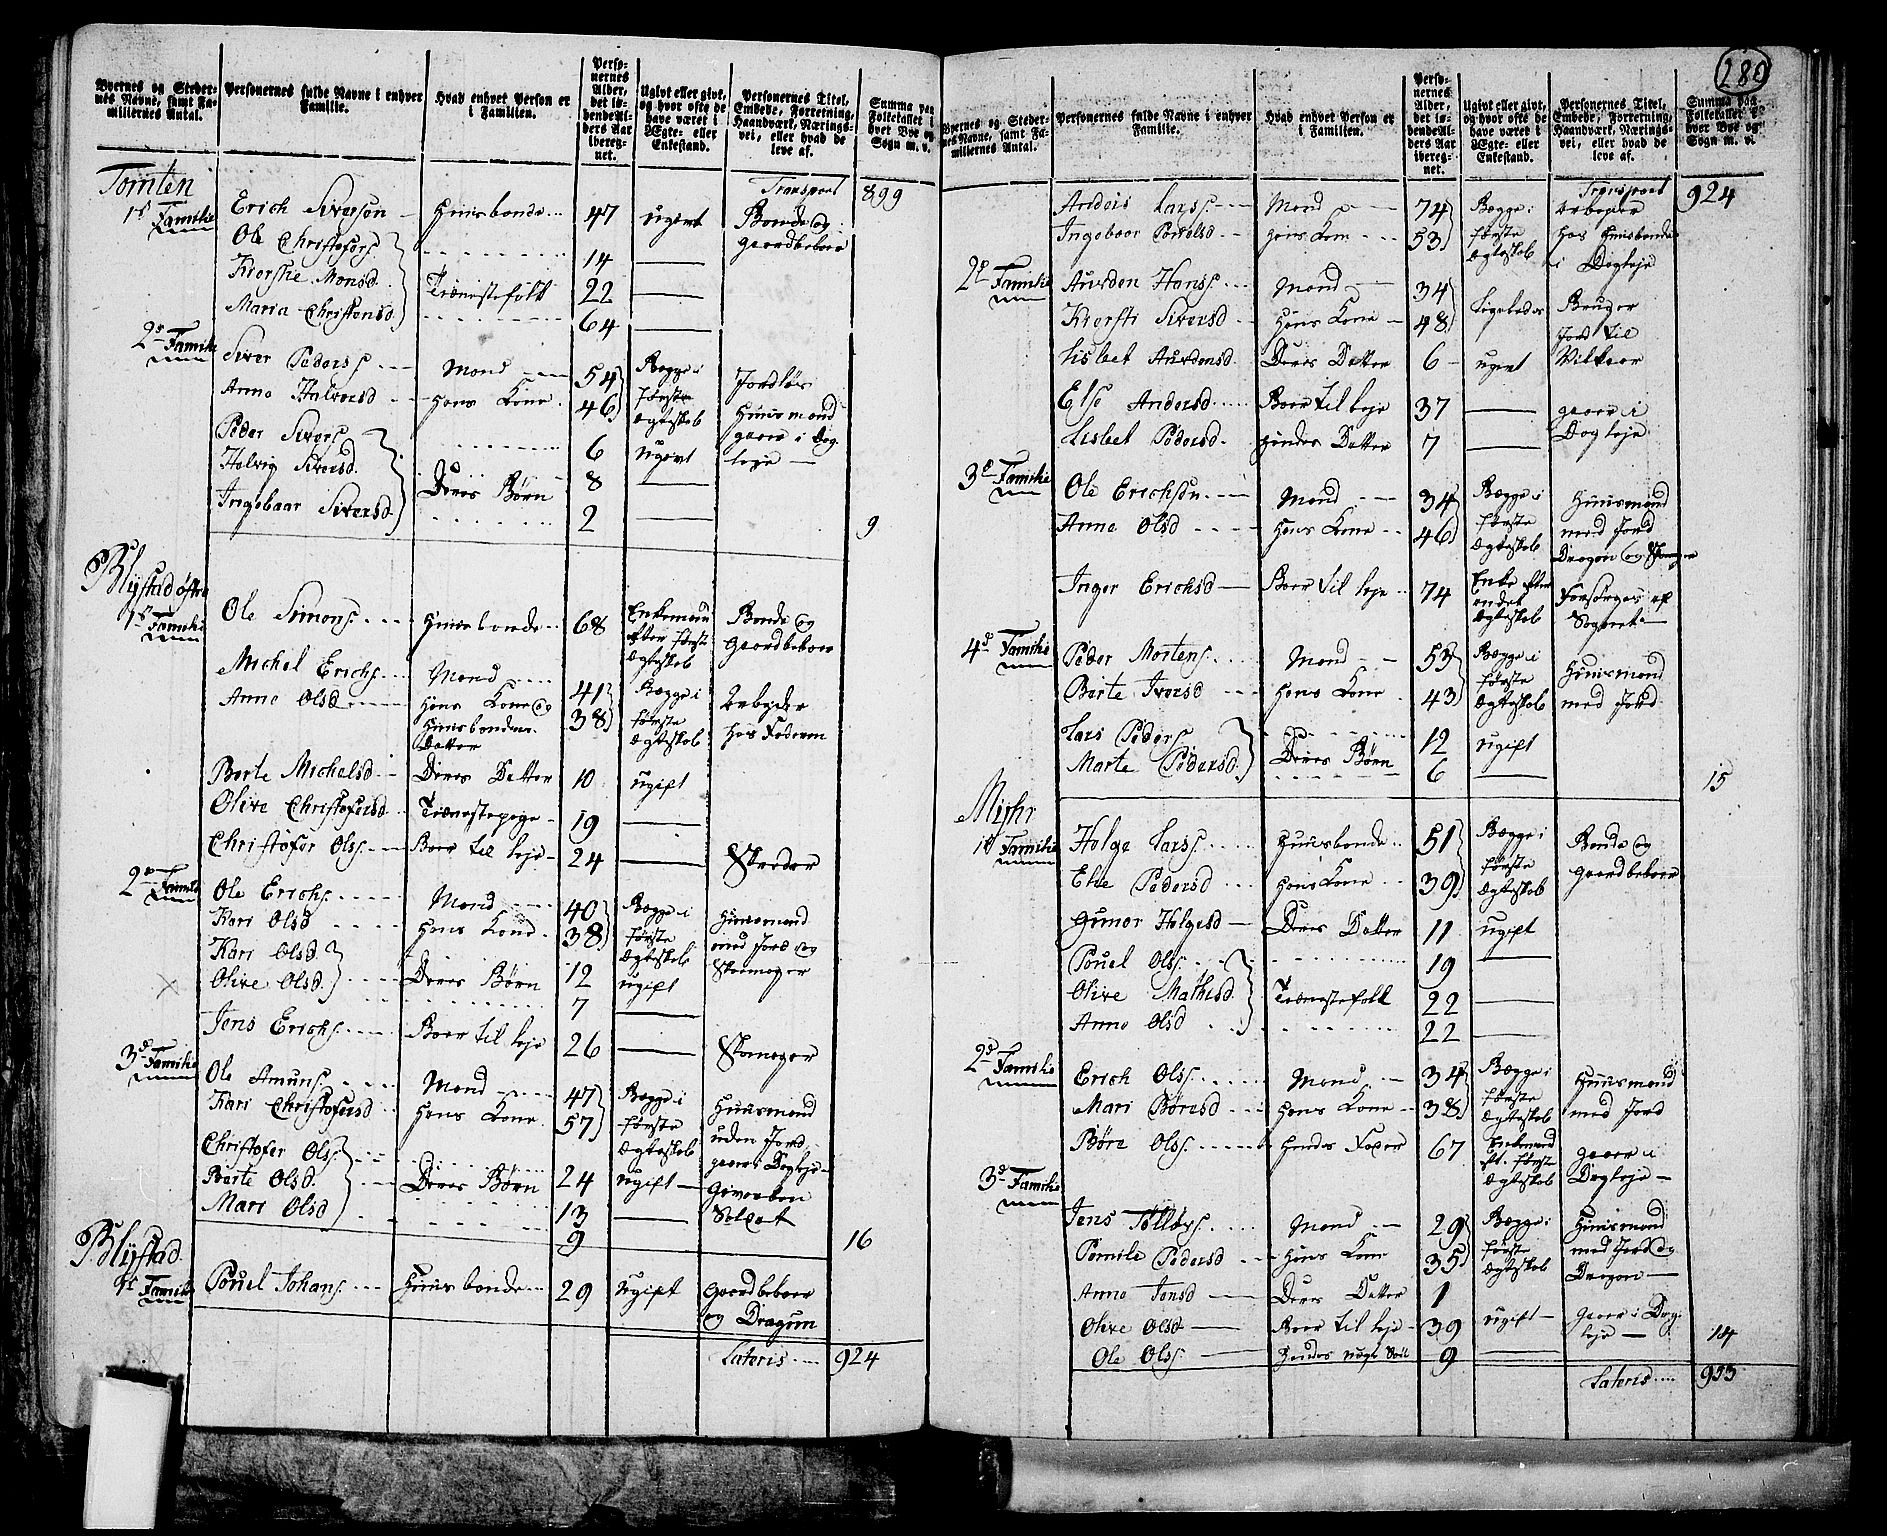 280
Byernes og Stedernes Navne, samt Familiernes Antal.
Personernes fulde Navne i enhver Familie.
Hvad enhver Person er i Familien.
Personernes Alder, det løbende Alders Aar iberegnet.
Ugivt eller givt, og hvor ofte de have været i Ægte- eller Enkestand.
Personernes Titel, Embede, Forretning, Haandværk, Næringsvei, eller hvad de leve af.
Summa paa Folketallet i hver Bye og Sogn m. v.
Transport 899
Tomten
1st Familie Erich Siversøn Huusbonde 47 ugivt Bonde og gaardbeboer
Ole Christofers. 14
Kiersti Monsd. Tienestefolk 22
Maria Christensd. 64
2de Familie Siver Peders. Mand 54 Begge i første Ægteskab Jordløs Huusmand gaaer i Dagleje
Anne Halvorsd. Hans Kone 46
Peder Sivers. 6 ugivt
Helvig Siversd. Deres Børn 8
Ingebaar Siversd. 2
9
Blystad østre
1st Familie Ole Simons. Huusbonde 68 Enkemand efter første Ægteskab Bonde og Gaardbeboer
Michel Erichs. Mand 41 Begge i første Ægteskab Arbejder hos Faderen
Anne Olsd. Hans Kone og Huusbondens Datter 38
Berte Michelsd. Deres Datter 10 ugift
Olive Christofersd. Tienestepige 19
Christofer Olss. Boer til leje 24 Skreder
2de Familie Ole Erichs. Mand 40 Begge i første Ægteskab Huusmand med Jord og Skomager
Kari Olsd. Hans Kone 38
Kari Olsd. Deres Børn 12 ugift
Olive Olsd. 7
Jens Erichs. Boer til leje 26 Skomager
3d Familie Ole Amuns. Mand 47 Begge i første Ægteskab Huusmand uden Jord, gaaer i Dagleje
Kari Christofersd. Hans Kone 57
Christofer Olss. 24 ugift Gevorben Soldat
Berte Olsd. Deres Børn 13
Mari Olsd. 9
16
Blystad
1st Familie Povel Johans. Huusbonde 29 ugift Gaardbeboer og Dragun
Lateris 924
Byernes og Stedernes Navne, samt Familiernes Antal.
Personernes fulde Navne i enhver Familie.
Hvad enhver Person er i Familien.
Personernes Alder, det løbende Alders Aar iberegnet.
Ugivt eller givt, og hvor ofte de have været i Ægte- eller Enkestand.
Personernes Titel, Embede, Forretning, Haandværk, Næringsvei, eller hvad de leve af.
Summa paa Folketallet i hver Bye og Sogn m. v.
Transport 924
Anders Larss. Mand 74 Begge i første Ægteskab Arbejder hos Huusbonde i Dagleje
Ingebaar Povelsd. Hans Kone 53
2d Familie Auden Hanss. Mand 34 Ligeledes Bruger Jord til Vilkaar
Kiersti Siversd. Hans Kone 48
Lisbet Audensd. Deres Datter 6 ugivt
Else Andersd. Boer til leje 37 gaaer i Dagleje
Lisbet Pedersd. Hendes Datter 7
3d Familie Ole Erichsøn Mand 34 Begge i første Ægteskab Huusmand med Jord Dragon og Skomager
Anne Olsd. Hans Kone 46
Inger Erichsd. Boer til leje 74 Enke efter andet Ægteskab Forsørges af Sognet
4d Familie Peder Mortens. Mand 53 Begge i første Ægteskab Huusmand med Jord
Berte Iversd. Hans Kone 43
Lars Peders. Deres Børn 12 ugift
Marte Pedersd. 6
15
Myhr
1st Familie Holge Larss. Huusbonde 51 Begge i første Ægteskab Bonde og gaardbeboer
Elie Pedersd. Hans Kone 39
Gunor Holgesd. Deres Datter 11 ugift
Povel Olss. 19
Olive Mathisd. Tienestefolk 22
Anne Olsd. 22
2d Familie Erich Olss. Mand 34 Begge i første Ægteskab Huusmand med Jord
Mari Børesd. Hans Kone 38
Børe Olss. Hendes Fader 67 Enkemand eft. første Ægteskab gaaer i Dagleje
3d Familie Jens Tølløvs. Mand 29 Begge i første Ægteskab Huusmand med Jord og Dragon
Pernille Pedersd. Hans Kone 35
Anne Jensd. Deres Datter 1
Olive Olsd. Boer til leje 39 ugift gaaer i Dagleje
Ole Olss. Hendes uægte Søn 9
14
Lateris 953